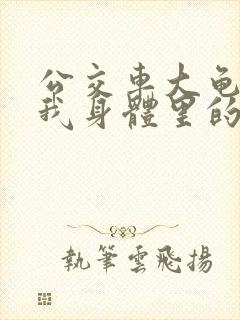 公交车大龟
我身體里的
執筆雲飛揚